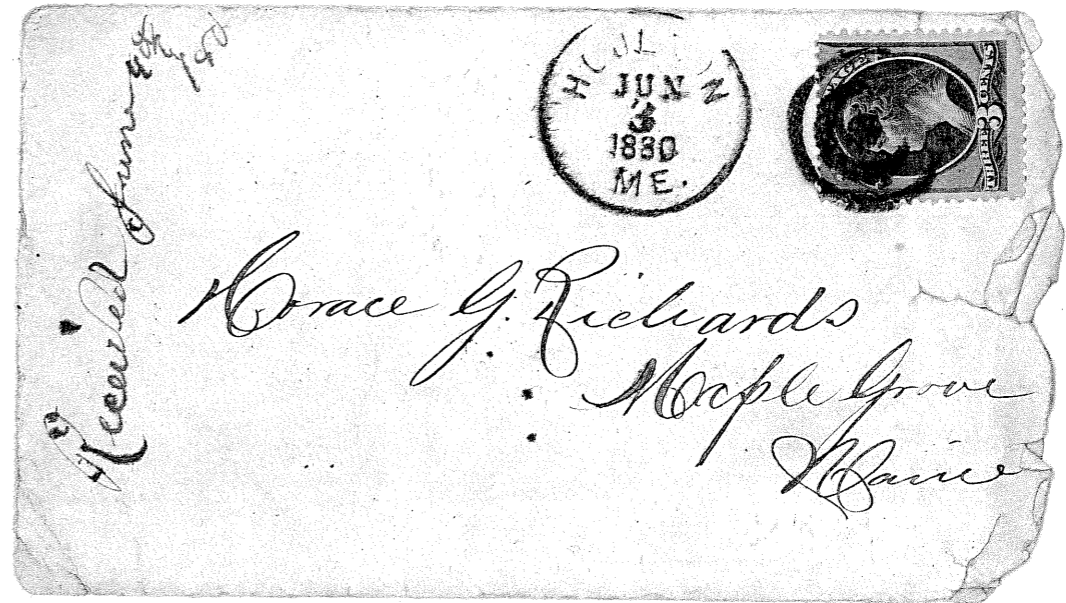 Received June
HOULTON
JUN
3
1880
ME.
3
Horace G. Richards
Maple Grove
Maine